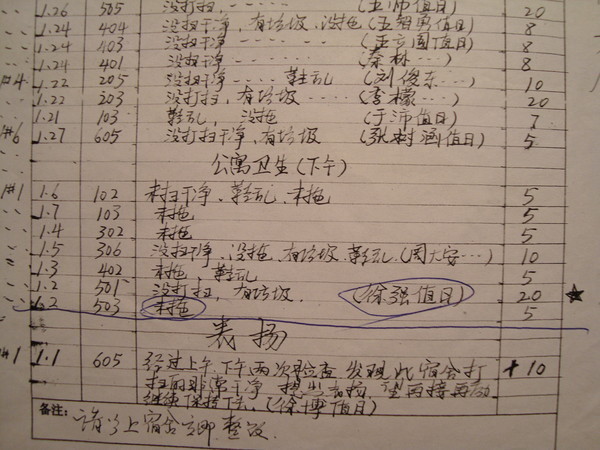 1.26 505 没打扫、----- (王沛值日) 20
1.24 404 没扫干净、有垃圾、没拖(王智勇值日) 8
1.24 403 没扫干净------(王立国值日) 8
1.24 401 没扫干净-----(秦林…) 8
#4 1.22 205 没扫干净---- 鞋乱(刘俊东…) 10
1.22 203 没打扫,有垃圾----(李檬…) 20
1.21 103 鞋乱, 没拖 (于沛值日) 7
#6 1.27 605 没打扫干净,有垃圾 (张树涵值日) 5
公寓卫生(下午)
1#1 1.6 102 未扫干净、鞋乱、未拖 5
1.7 103 未拖 5
1.4 302 未拖 5
1.5 306 没扫干净、没拖、有垃圾、鞋乱(周大安…) 10
1.3 402 未拖、鞋乱 5
1.2 501 没打扫,有垃圾. (徐强值日) 20 ★
1.2 503 未拖 5
表扬
#1 1.1 605 经过上午、下午两次检查,发现此宿舍打 +10
扫的非常干净, 提出表扬, 望再接再励
继续保持下去、(徐博值日)
备注: 请以上宿舍立即整改.